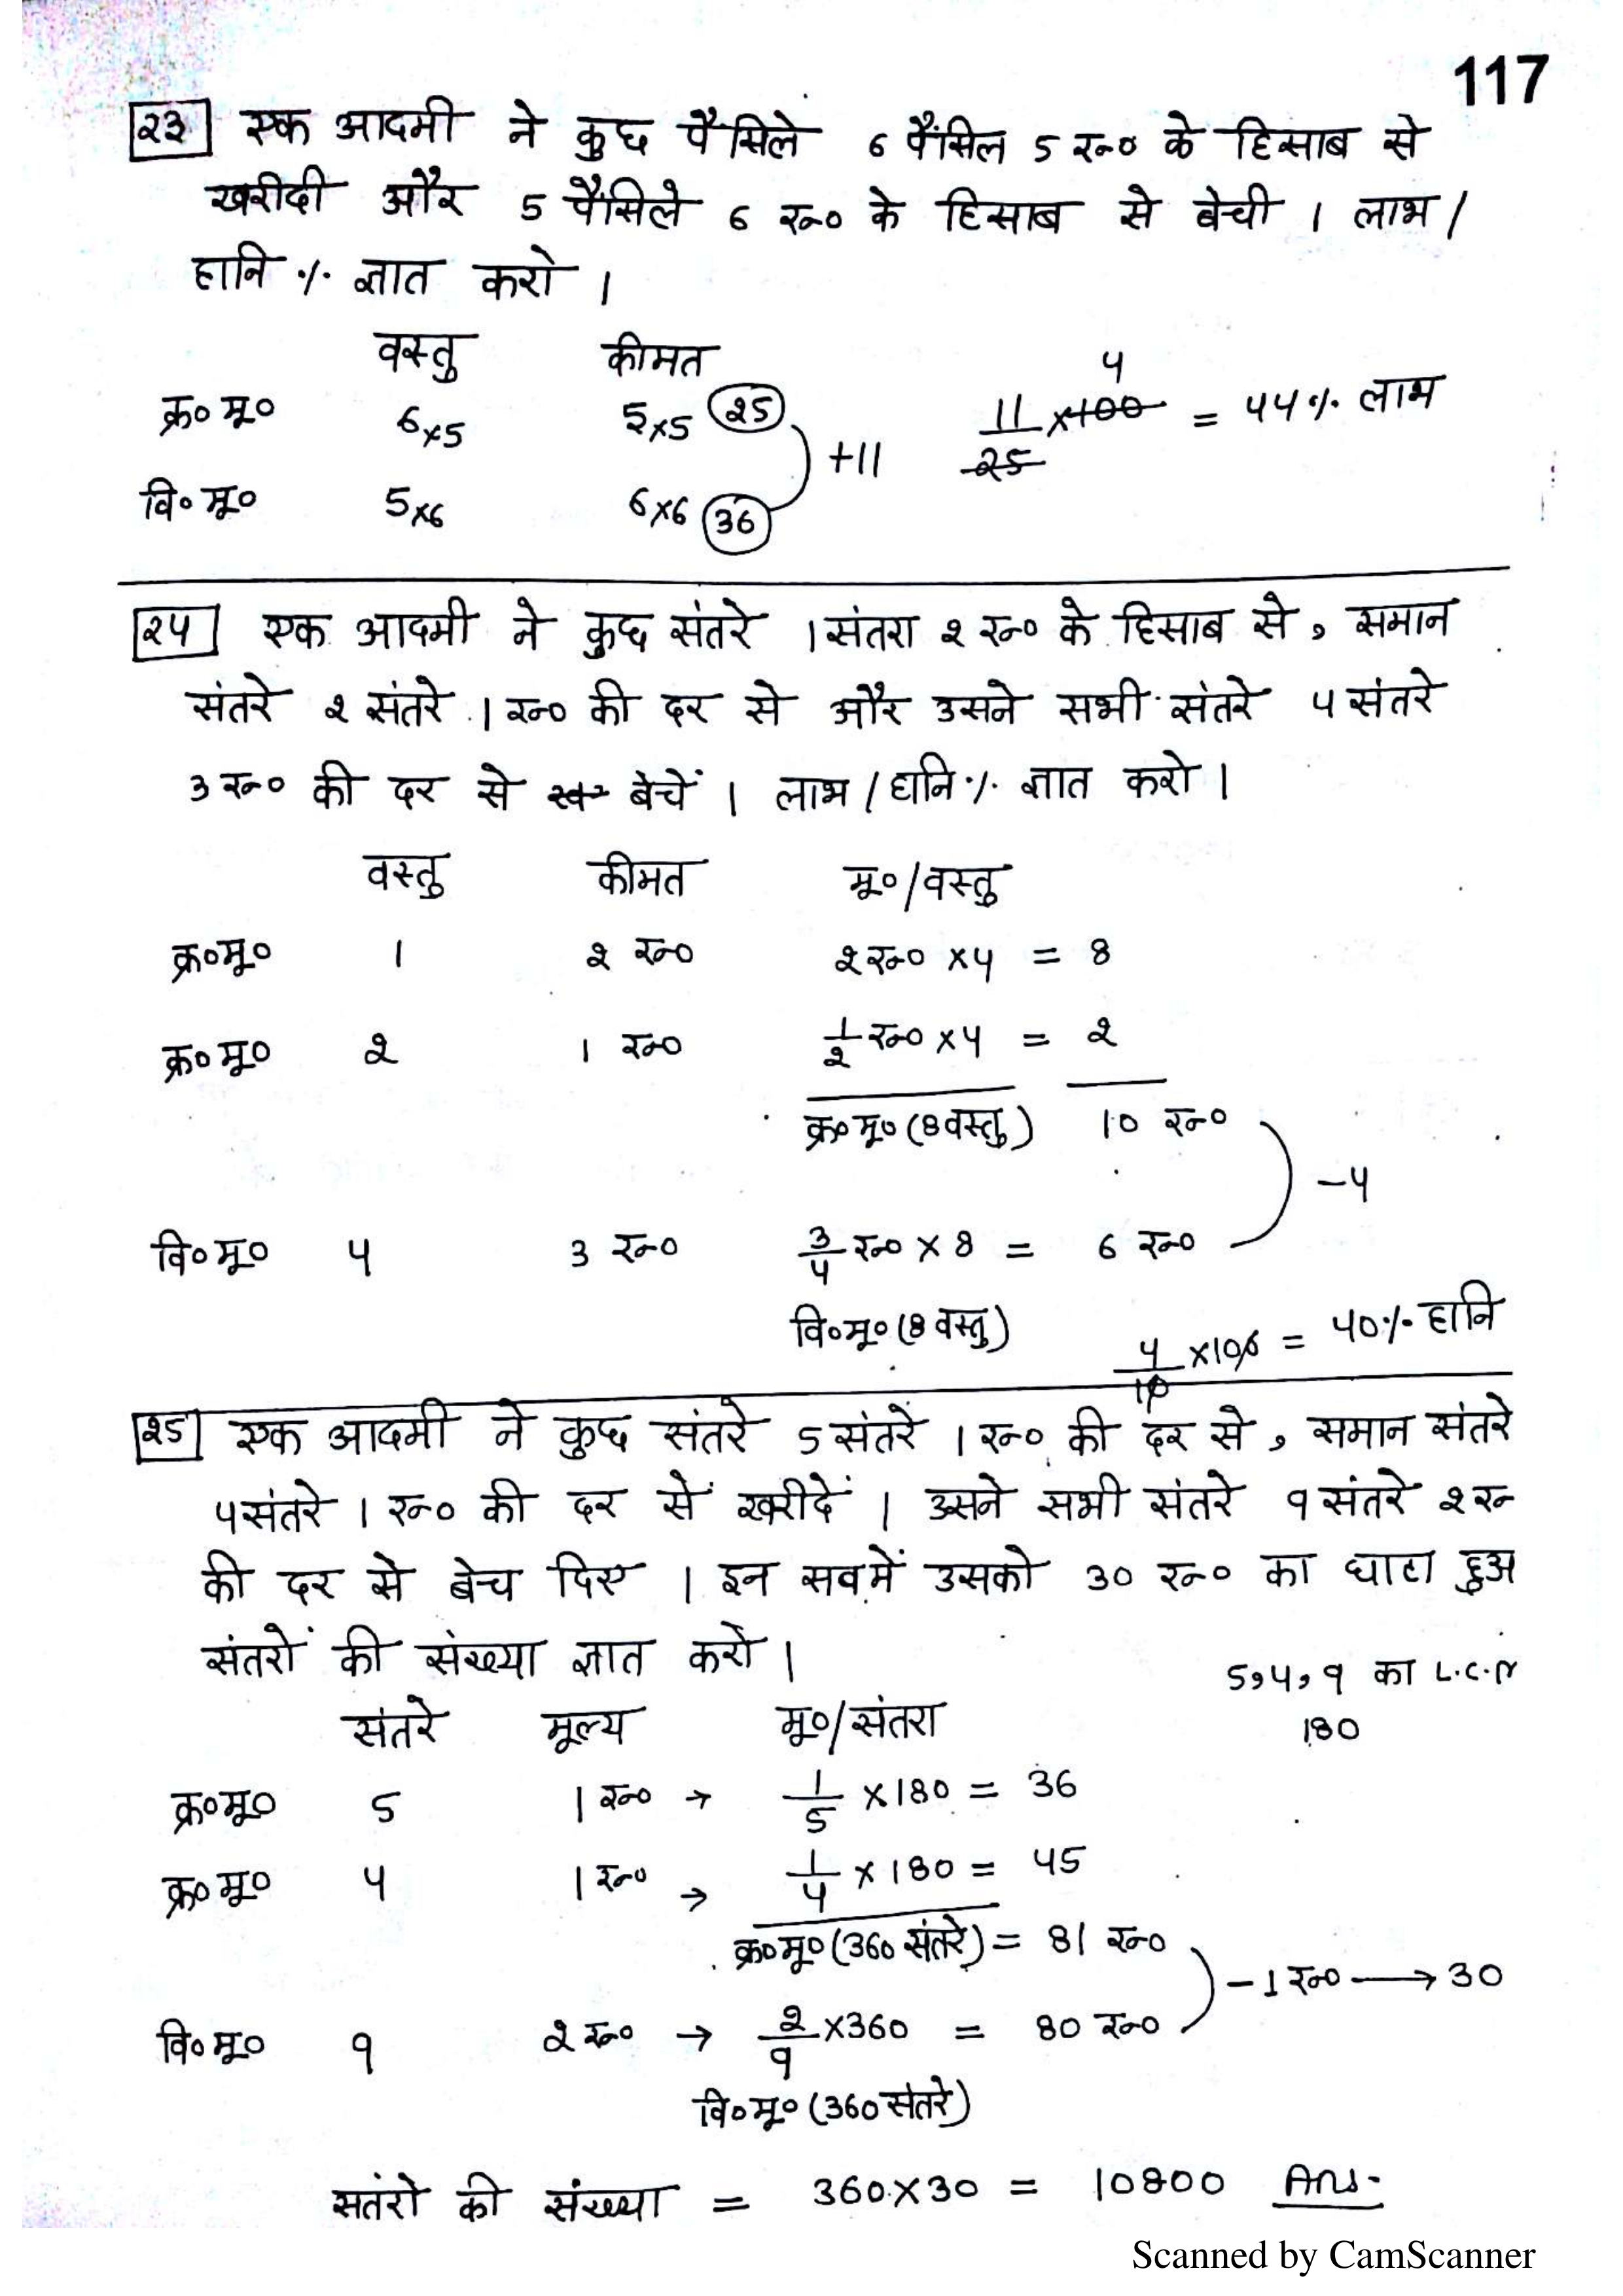 117
23 एक आदमी ने कुछ पैंसिले 6 पैंसिल 5 रु० के हिसाब से
खरीदी और 5 पैंसिले 6 रु० के हिसाब से बेची । लाभ/
हानि % ज्ञात करो ।
वस्तु कीमत
क्र० मू० 6×5 5×5 25
वि० मू० 5×6 6×6 36
+11
11/25 ×100 4 = 44% लाभ
24 एक आदमी ने कुछ संतरे 1 संतरा 2 रु० के हिसाब से, समान
संतरे 2 संतरे 1 रु० की दर से और उसने सभी संतरे 4 संतरे
3 रु० की दर से बेचें । लाभ/हानि % ज्ञात करो ।
वस्तु कीमत मू०/वस्तु
क्र०मू० 1 2 रु० 2 रु० ×4 = 8
क्र० मू० 2 1 रु० 1/2 रु० ×4 = 2
क्र० मू० (8 वस्तु) 10 रु०
-4
वि० मू० 4 3 रु० 3/4 रु० × 8 = 6 रु०
वि०मू० (8 वस्तु)
4/10 ×100 = 40% हानि
25 एक आदमी ने कुछ संतरे 5 संतरें 1 रु० की दर से, समान संतरे
4 संतरे 1 रु० की दर सें खरीदें । उसने सभी संतरे 9 संतरे 2 रु
की दर से बेच दिए । इन सबमें उसको 30 रु० का घाटा हुअ
संतरों की संख्या ज्ञात करो ।
5, 4, 9 का L.C.M
180
संतरे मूल्य मू०/संतरा
क्र०मू० 5 1 रु० → 1/5 ×180 = 36
क्र० मू० 4 1 रु० → 1/4 × 180 = 45
क्र०मू० (360 संतरे) = 81 रु०
-1 रु० → 30
वि० मू० 9 2 रु० → 2/9 ×360 = 80 रु०
वि० मू० (360 संतरे)
सतंरो की संख्या = 360×30 = 10800 Ans.
Scanned by CamScanner